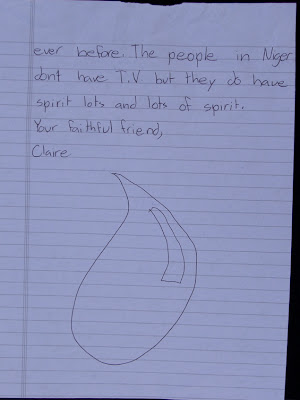 ever before. The people in Niger
dont have T.V but they do have
spirit lots and lots of spirit.
Your faithful friend,
Claire